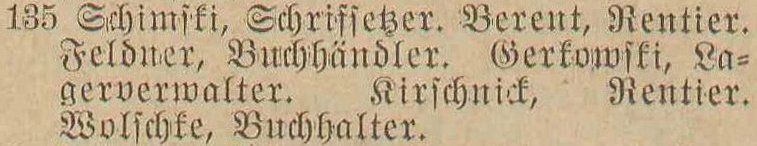 135 Schimski, Schriffsetzer. Berent, Rentier.
Feldner, Buchhändler. Gerkowski, La-
gerverwalter. Kirschnick, Rentier.
Wolschke, Buchhalter.